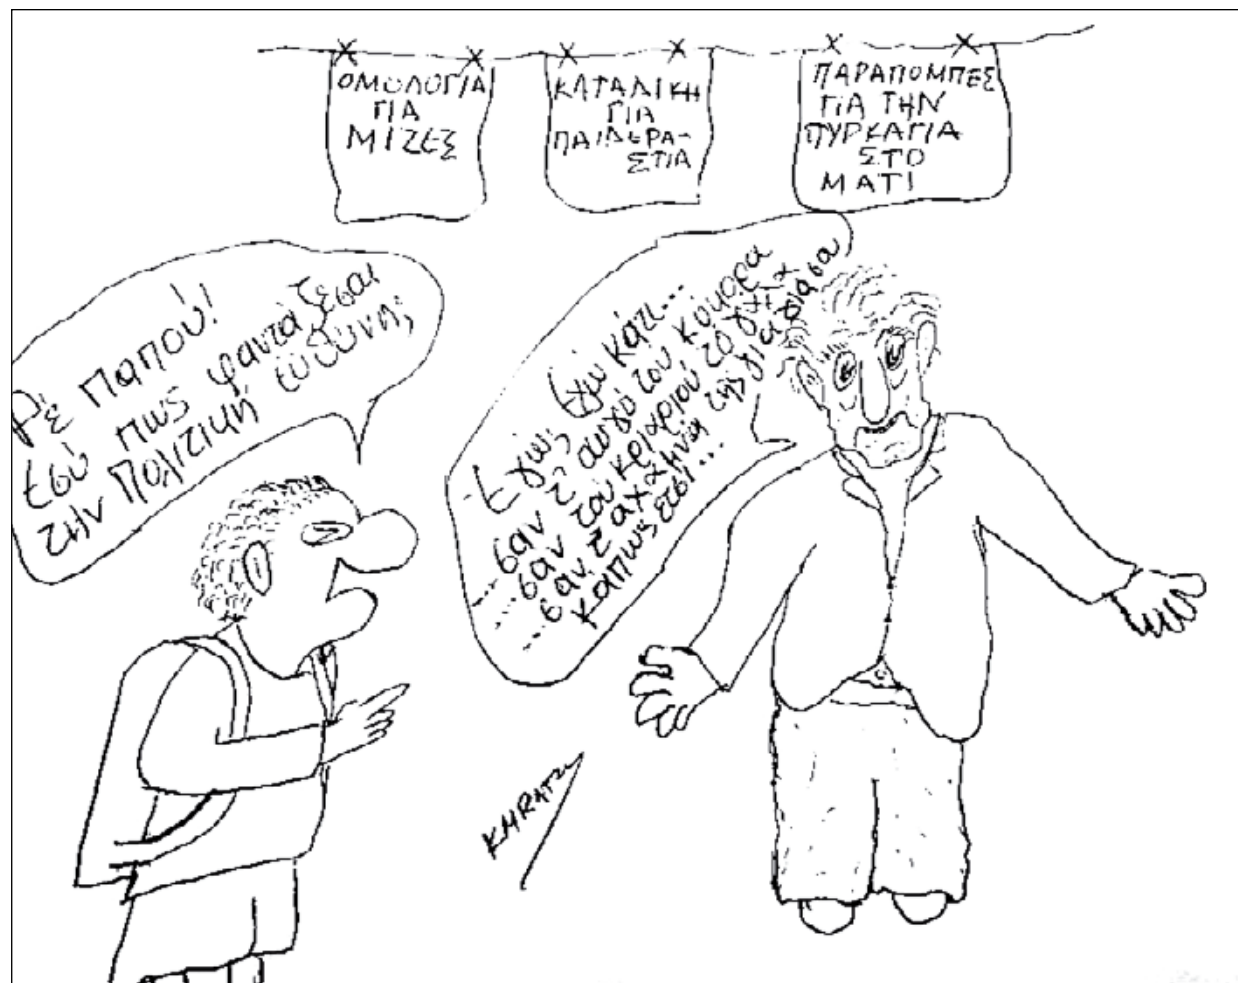 ΟΜΟΛΟΓΙΑ
ΓΙΑ
ΜΙΖΕΣ
ΚΑΤΑΔΙΚΗ
ΓΙΑ
ΠΑΙΔΕΡΑ-
ΣΤΙΑ
ΠΑΡΑΠΟΜΠΕΣ
ΓΙΑ ΤΗΝ
ΠΥΡΚΑΓΙΑ
ΣΤΟ
ΜΑΤΙ
Ρε παπού!
εσύ πως φαντάζεσαι
την πολιτική ευθύνη;
Εγώ; Εχω κάτι...
... σαν τ' αυγό του κόκορα
... σαν του κριαριού το γάλα
... σαν τ' αχαμνά της γιαγιάς σα
κάπως έτσι...
KMRATZ